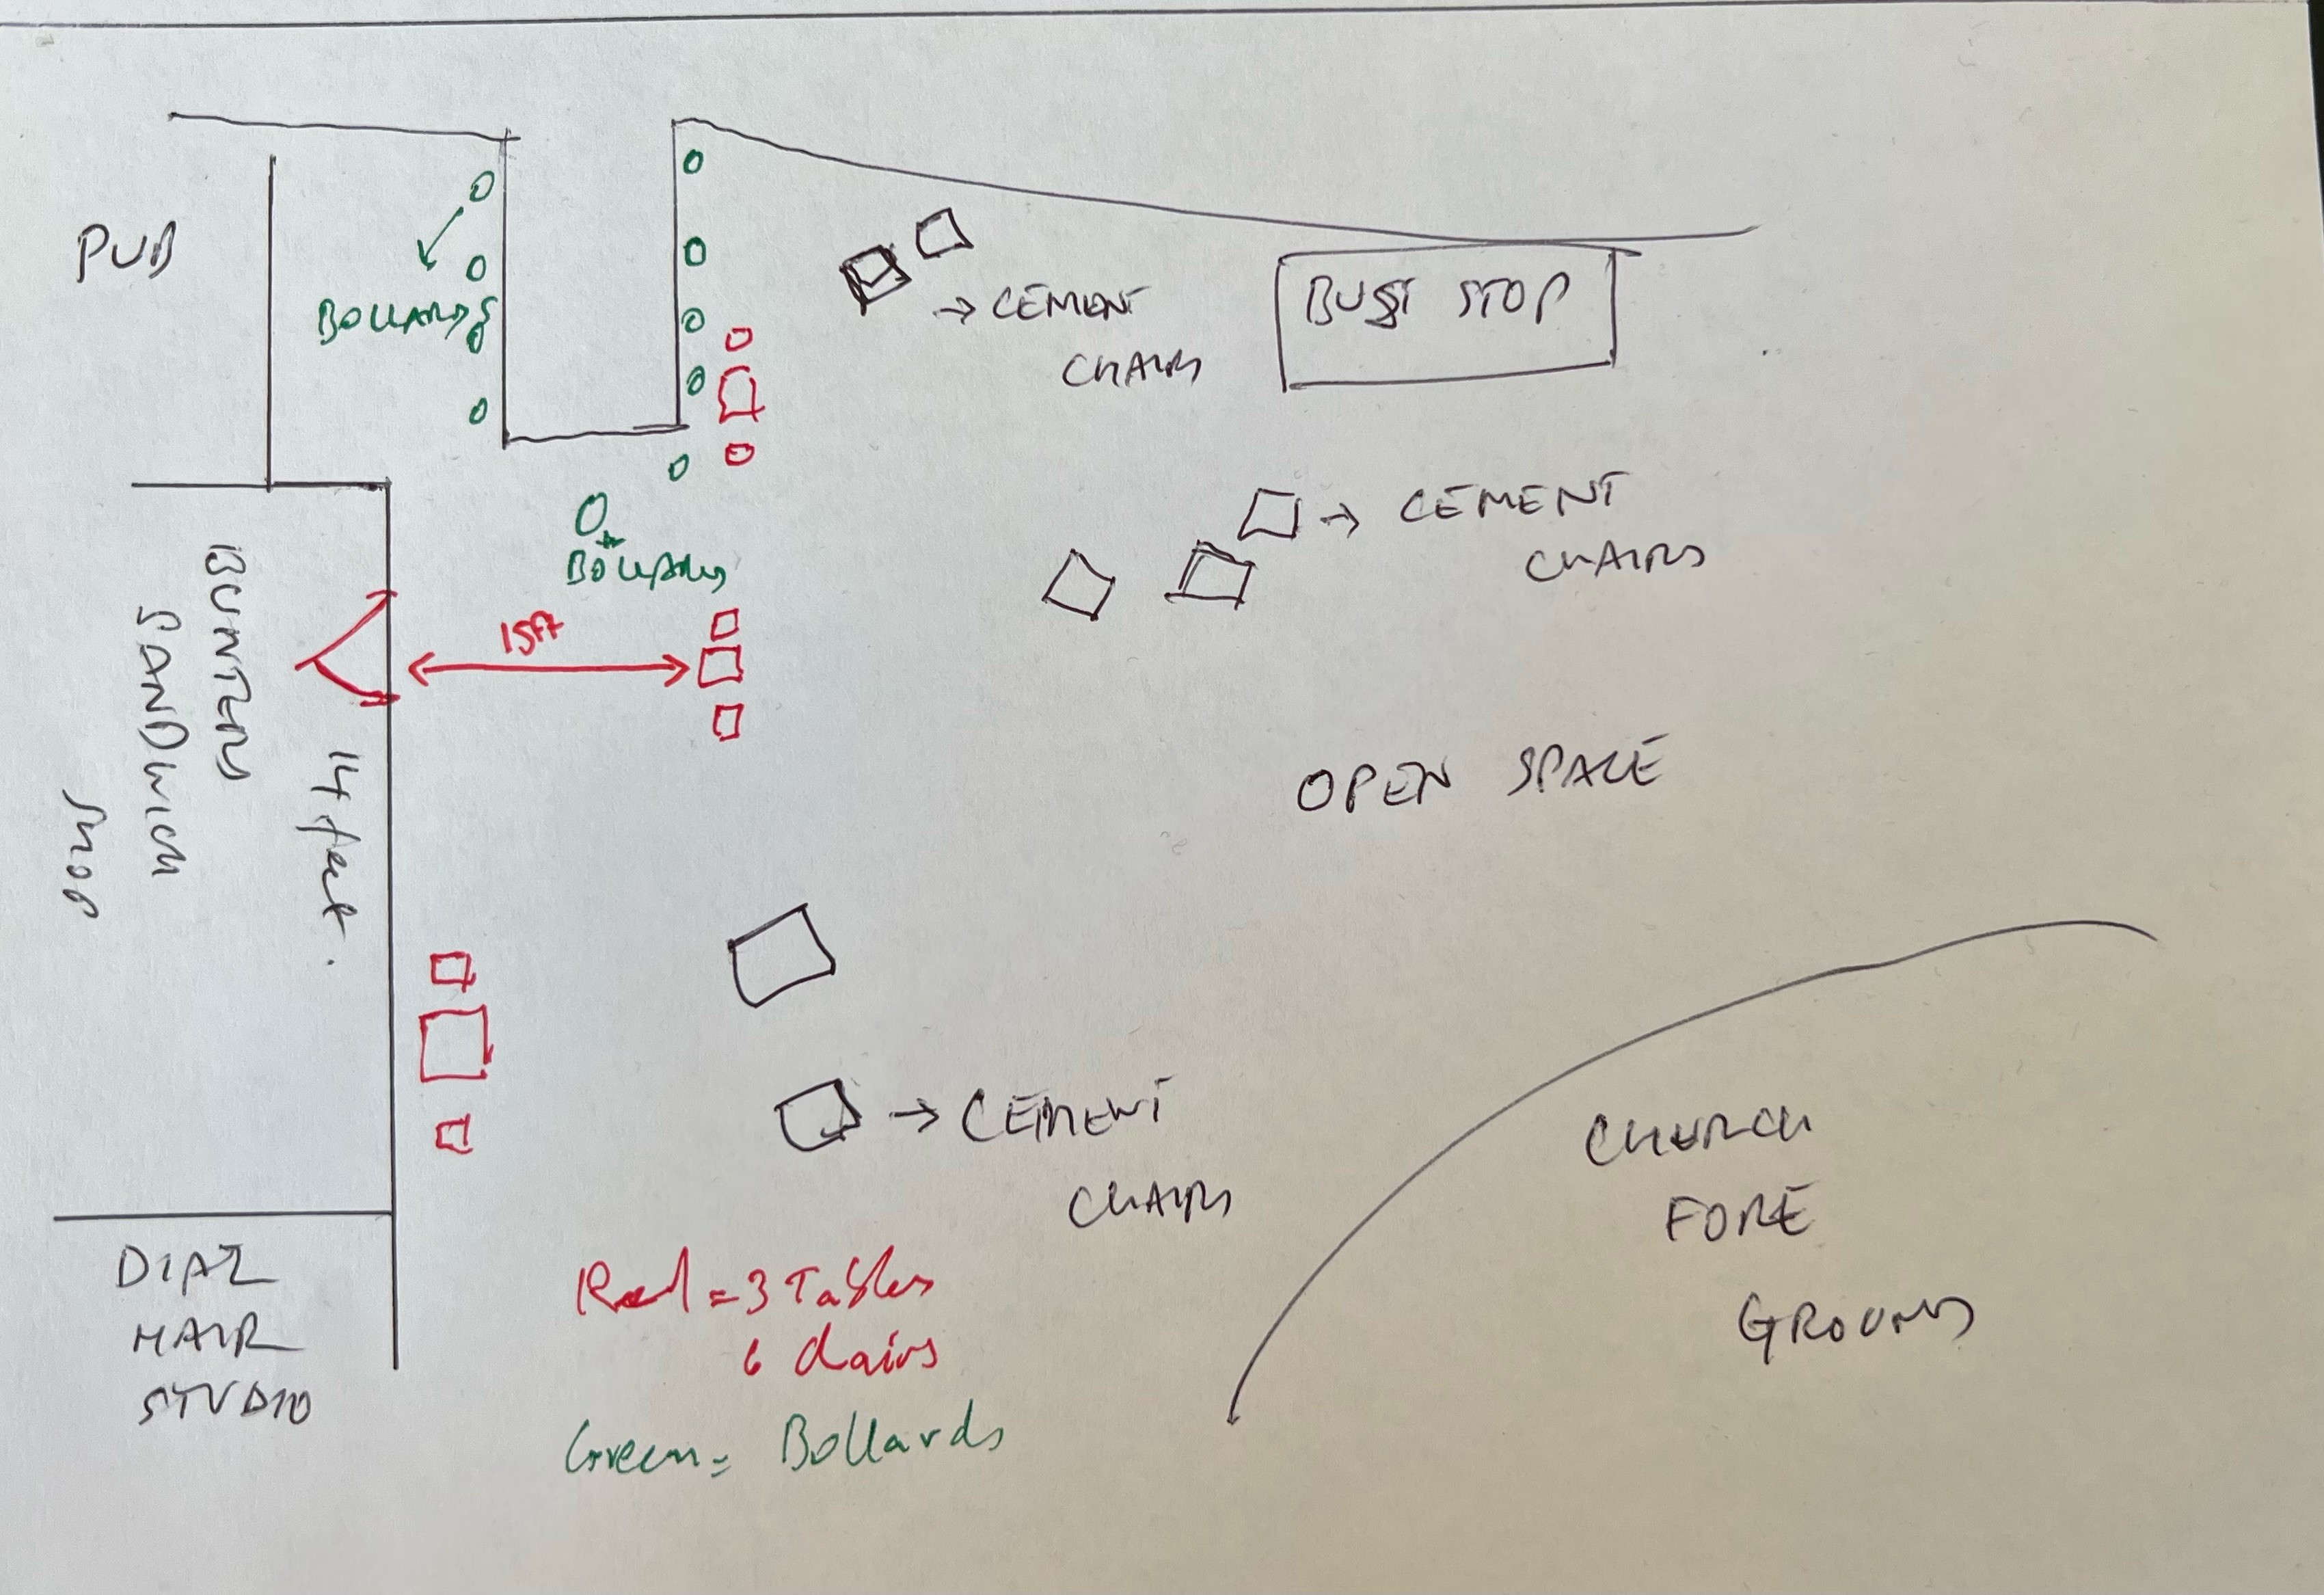 PUB
BOLLARDS
→ CEMENT
CHAIRS
BUS STOP
→ CEMENT
CHAIRS
BOLLARDS
15ft
BUNTERS
SANDWICH
SHOP
14 feet.
OPEN SPACE
→ CEMENT
CHAIRS
CHURCH
FORE
GROUNDS
DIAZ
HAIR
STUDIO
Red = 3 Tables
6 chairs
Green = Bollards